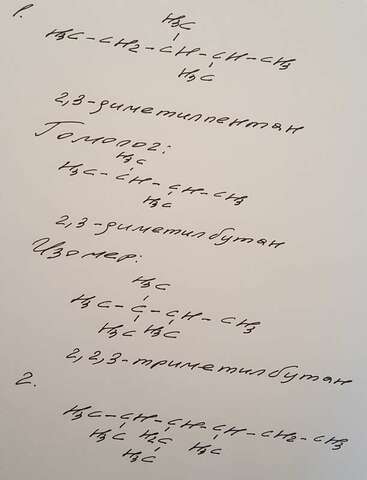 1.
H3C
H3C - CH2 - CH - CH - CH3
H3C
2,3-диметилпентан
Гомолог:
H3C
H3C - CH - CH - CH3
H3C
2,3-диметилбутан
Изомер:
H3C
H3C - C - CH - CH3
H3C H3C
2,2,3-триметилбутан
2.
H3C - CH - CH - CH - CH2 - CH3
H3C H2C H3C
H3C